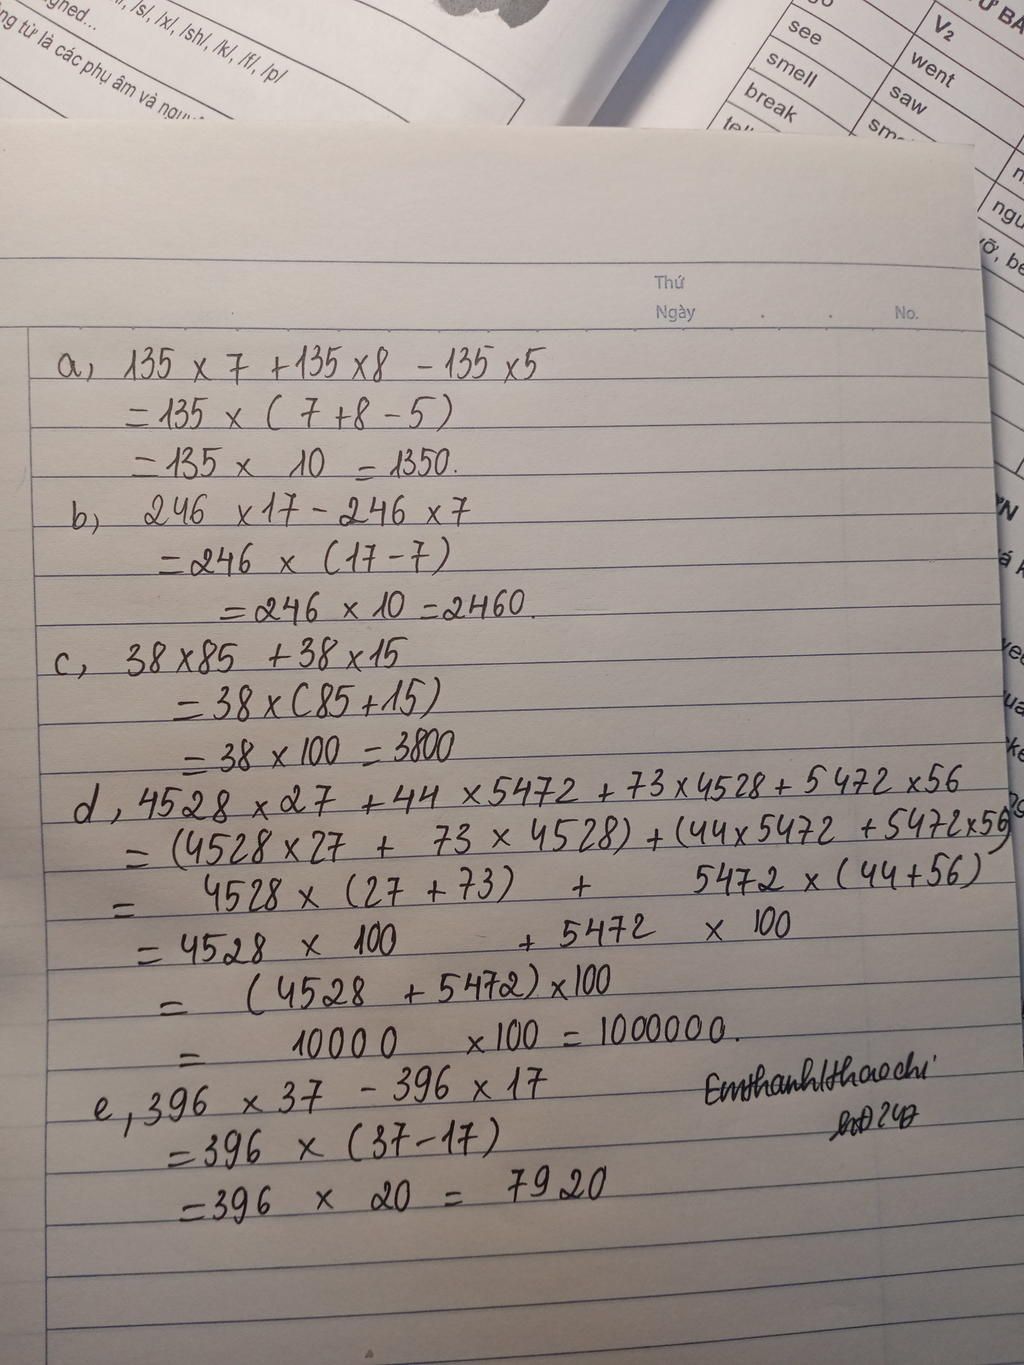 /s/, /x/, /sh/, /k/, /f/, /p/
từ là các phụ âm và
V₂
see
went
smell
saw
break
Thứ
Ngày . . No.
a, 135 × 7 + 135 × 8 - 135 × 5
= 135 × ( 7 + 8 - 5 )
= 135 × 10 = 1350.
b, 246 × 17 - 246 × 7
= 246 × (17 - 7)
= 246 × 10 = 2460.
c, 38 × 85 + 38 × 15
= 38 × (85 + 15)
= 38 × 100 = 3800
d, 4528 × 27 + 44 × 5472 + 73 × 4528 + 5472 × 56
= (4528 × 27 + 73 × 4528) + (44 × 5472 + 5472 × 56)
= 4528 × (27 + 73) + 5472 × (44 + 56)
= 4528 × 100 + 5472 × 100
= (4528 + 5472) × 100
= 10000 × 100 = 1000000.
e, 396 × 37 - 396 × 17
= 396 × (37 - 17)
= 396 × 20 = 7920